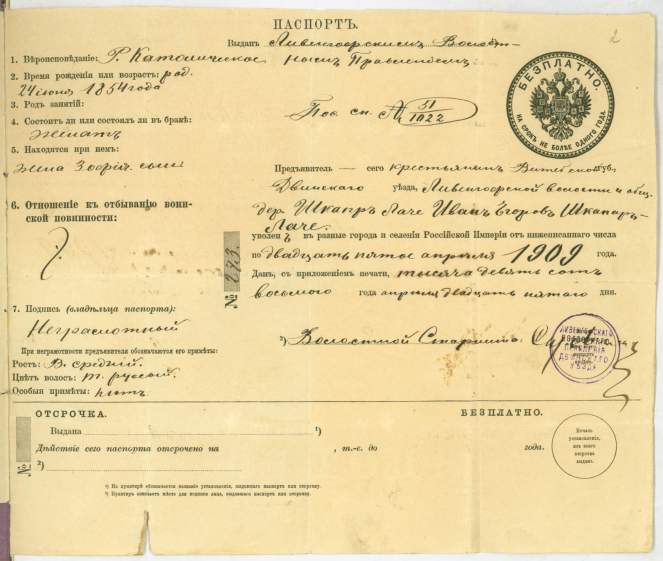 ПАСПОРТЪ.
2
Выданъ Ливенгофскимъ Волост-
1. Вѣроисповѣданіе: Р. Католическое
нымъ Правленіемъ
2. Время рожденія или возрастъ: род.
24 июня 1854 года
3. Родъ занятій:
Пос. сп. № 51/1022
4. Состоитъ ли или состоялъ ли въ бракѣ:
женатъ
5. Находятся при немъ:
жена
БЕЗПЛАТНО.
НА СРОКЪ НЕ БОЛѢЕ ОДНОГО ГОДА.
Предъявитель — сего крестьянинъ Витебской губ.
Двинскаго уѣзда, Ливенгофской волости и общ.
6. Отношеніе къ отбыванію воинской повинности:
дер. Шкапръ Лаче Иванъ Егоровъ Шкапаръ-
Лаче.
уволенъ въ разные города и селенія Россійской Имперіи отъ нижеписаннаго числа
по двадцать пятое апрѣля 1909 года.
№ 293.
Данъ, съ приложеніемъ печати, тысяча девять сотъ
восьмого года апрѣля двадцать пятаго дня.
7. Подпись (владѣльца паспорта):
Неграмотный
При неграмотности предъявителя обозначаются его примѣты:
Ростъ: В. средній
Цвѣтъ волосъ: т. русый.
Особыя примѣты: нѣтъ
²) Волостной Старшина
ЛИВЕНГОФСКАГО
ВОЛОСТНОГО
ПРАВЛЕНІЯ
ДВИНСКАГО
УѢЗДА
ОТСРОЧКА.
БЕЗПЛАТНО.
Выдана ¹)
Дѣйствіе сего паспорта отсрочено на , т.-е. до года.
№
²)
Печать установленія, изъ коего отсрочка выдана.
¹) На пунктирѣ обозначается названіе установленія, выдавшаго паспортъ или отсрочку.
²) Пунктиръ означаетъ мѣсто для подписи лица, выдавшаго паспортъ или отсрочку.